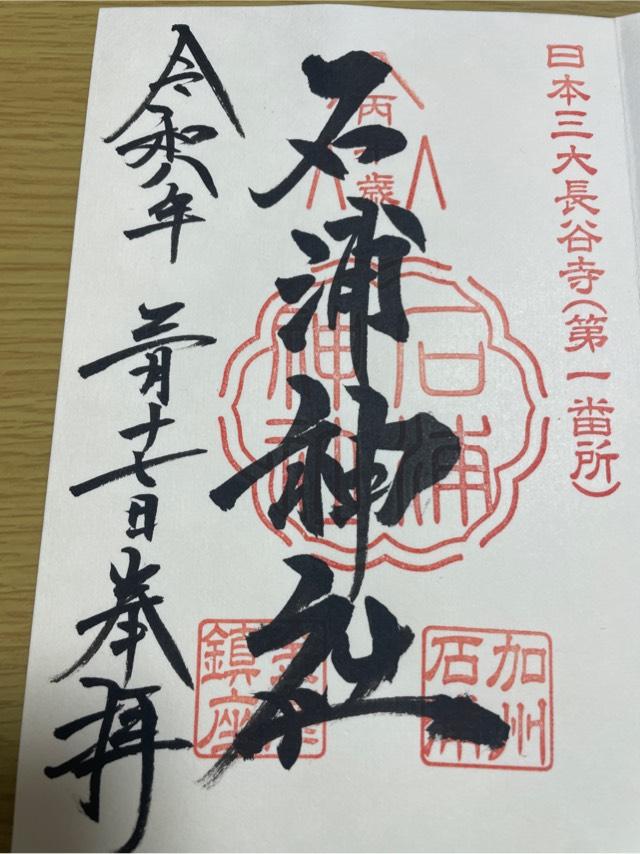 日本三大長谷寺(第一番所)
丙 歳
石浦神社
石浦神社
加州
石浦
鎮座
令和八年 三月十七日 奉拝